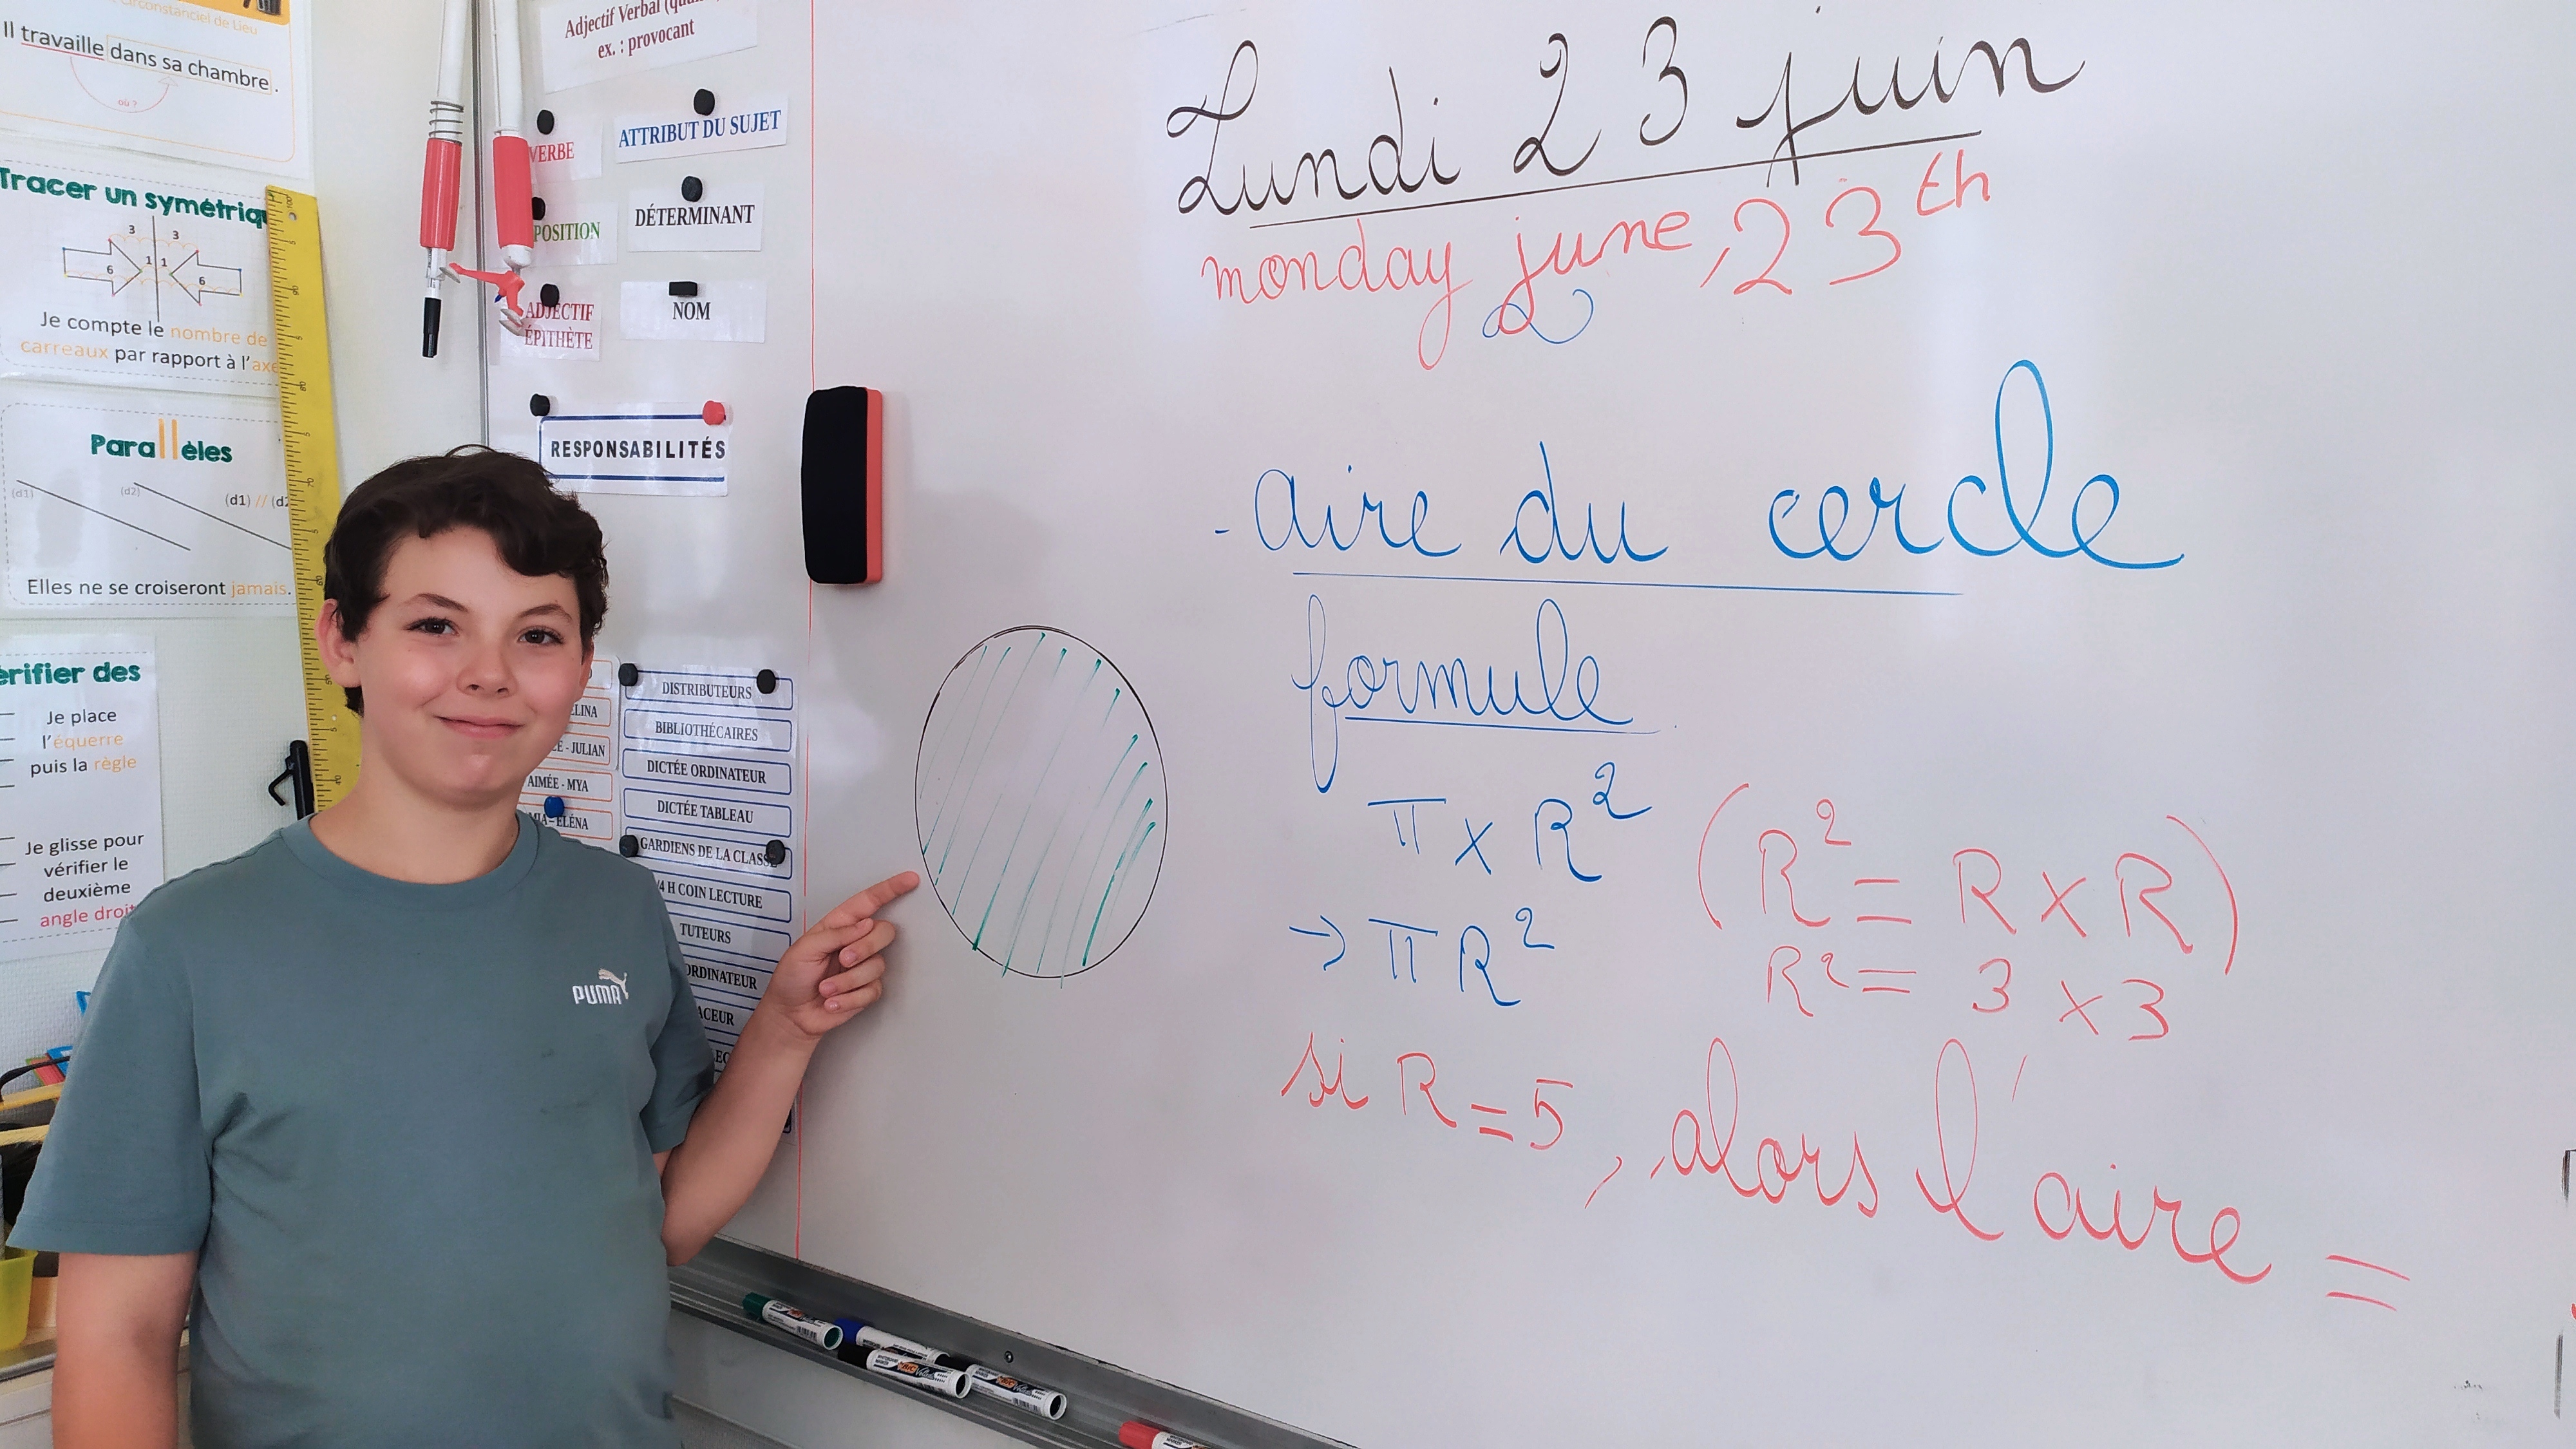 Circonstanciel de Lieu
Il travaille dans sa chambre.
où ?
Tracer un symétriq
3 3
6 1 1 6
Je compte le nombre de
carreaux par rapport à l'axe
Parallèles
(d1) (d2) (d1) // (d2
Elles ne se croiseront jamais.
érifier des
Je place
l'équerre
puis la règle
Je glisse pour
vérifier le
deuxième
angle droit
Adjectif Verbal
ex. : provocant
VERBE
ATTRIBUT DU SUJET
POSITION
DÉTERMINANT
ADJECTIF
ÉPITHÈTE
NOM
RESPONSABILITÉS
LINA
JULIAN
AIMÉE - MYA
ÉLÉNA
DISTRIBUTEURS
BIBLIOTHÉCAIRES
DICTÉE ORDINATEUR
DICTÉE TABLEAU
GARDIENS DE LA CLASSE
/4 H COIN LECTURE
TUTEURS
ORDINATEUR
ACEUR
PUMA
Lundi 23 juin
monday june, 23th
- aire du cercle
formule
π x R²
(R² = R x R)
→ π R²
R² = 3 x 3
si R = 5, alors l'aire =
BIC
BIC